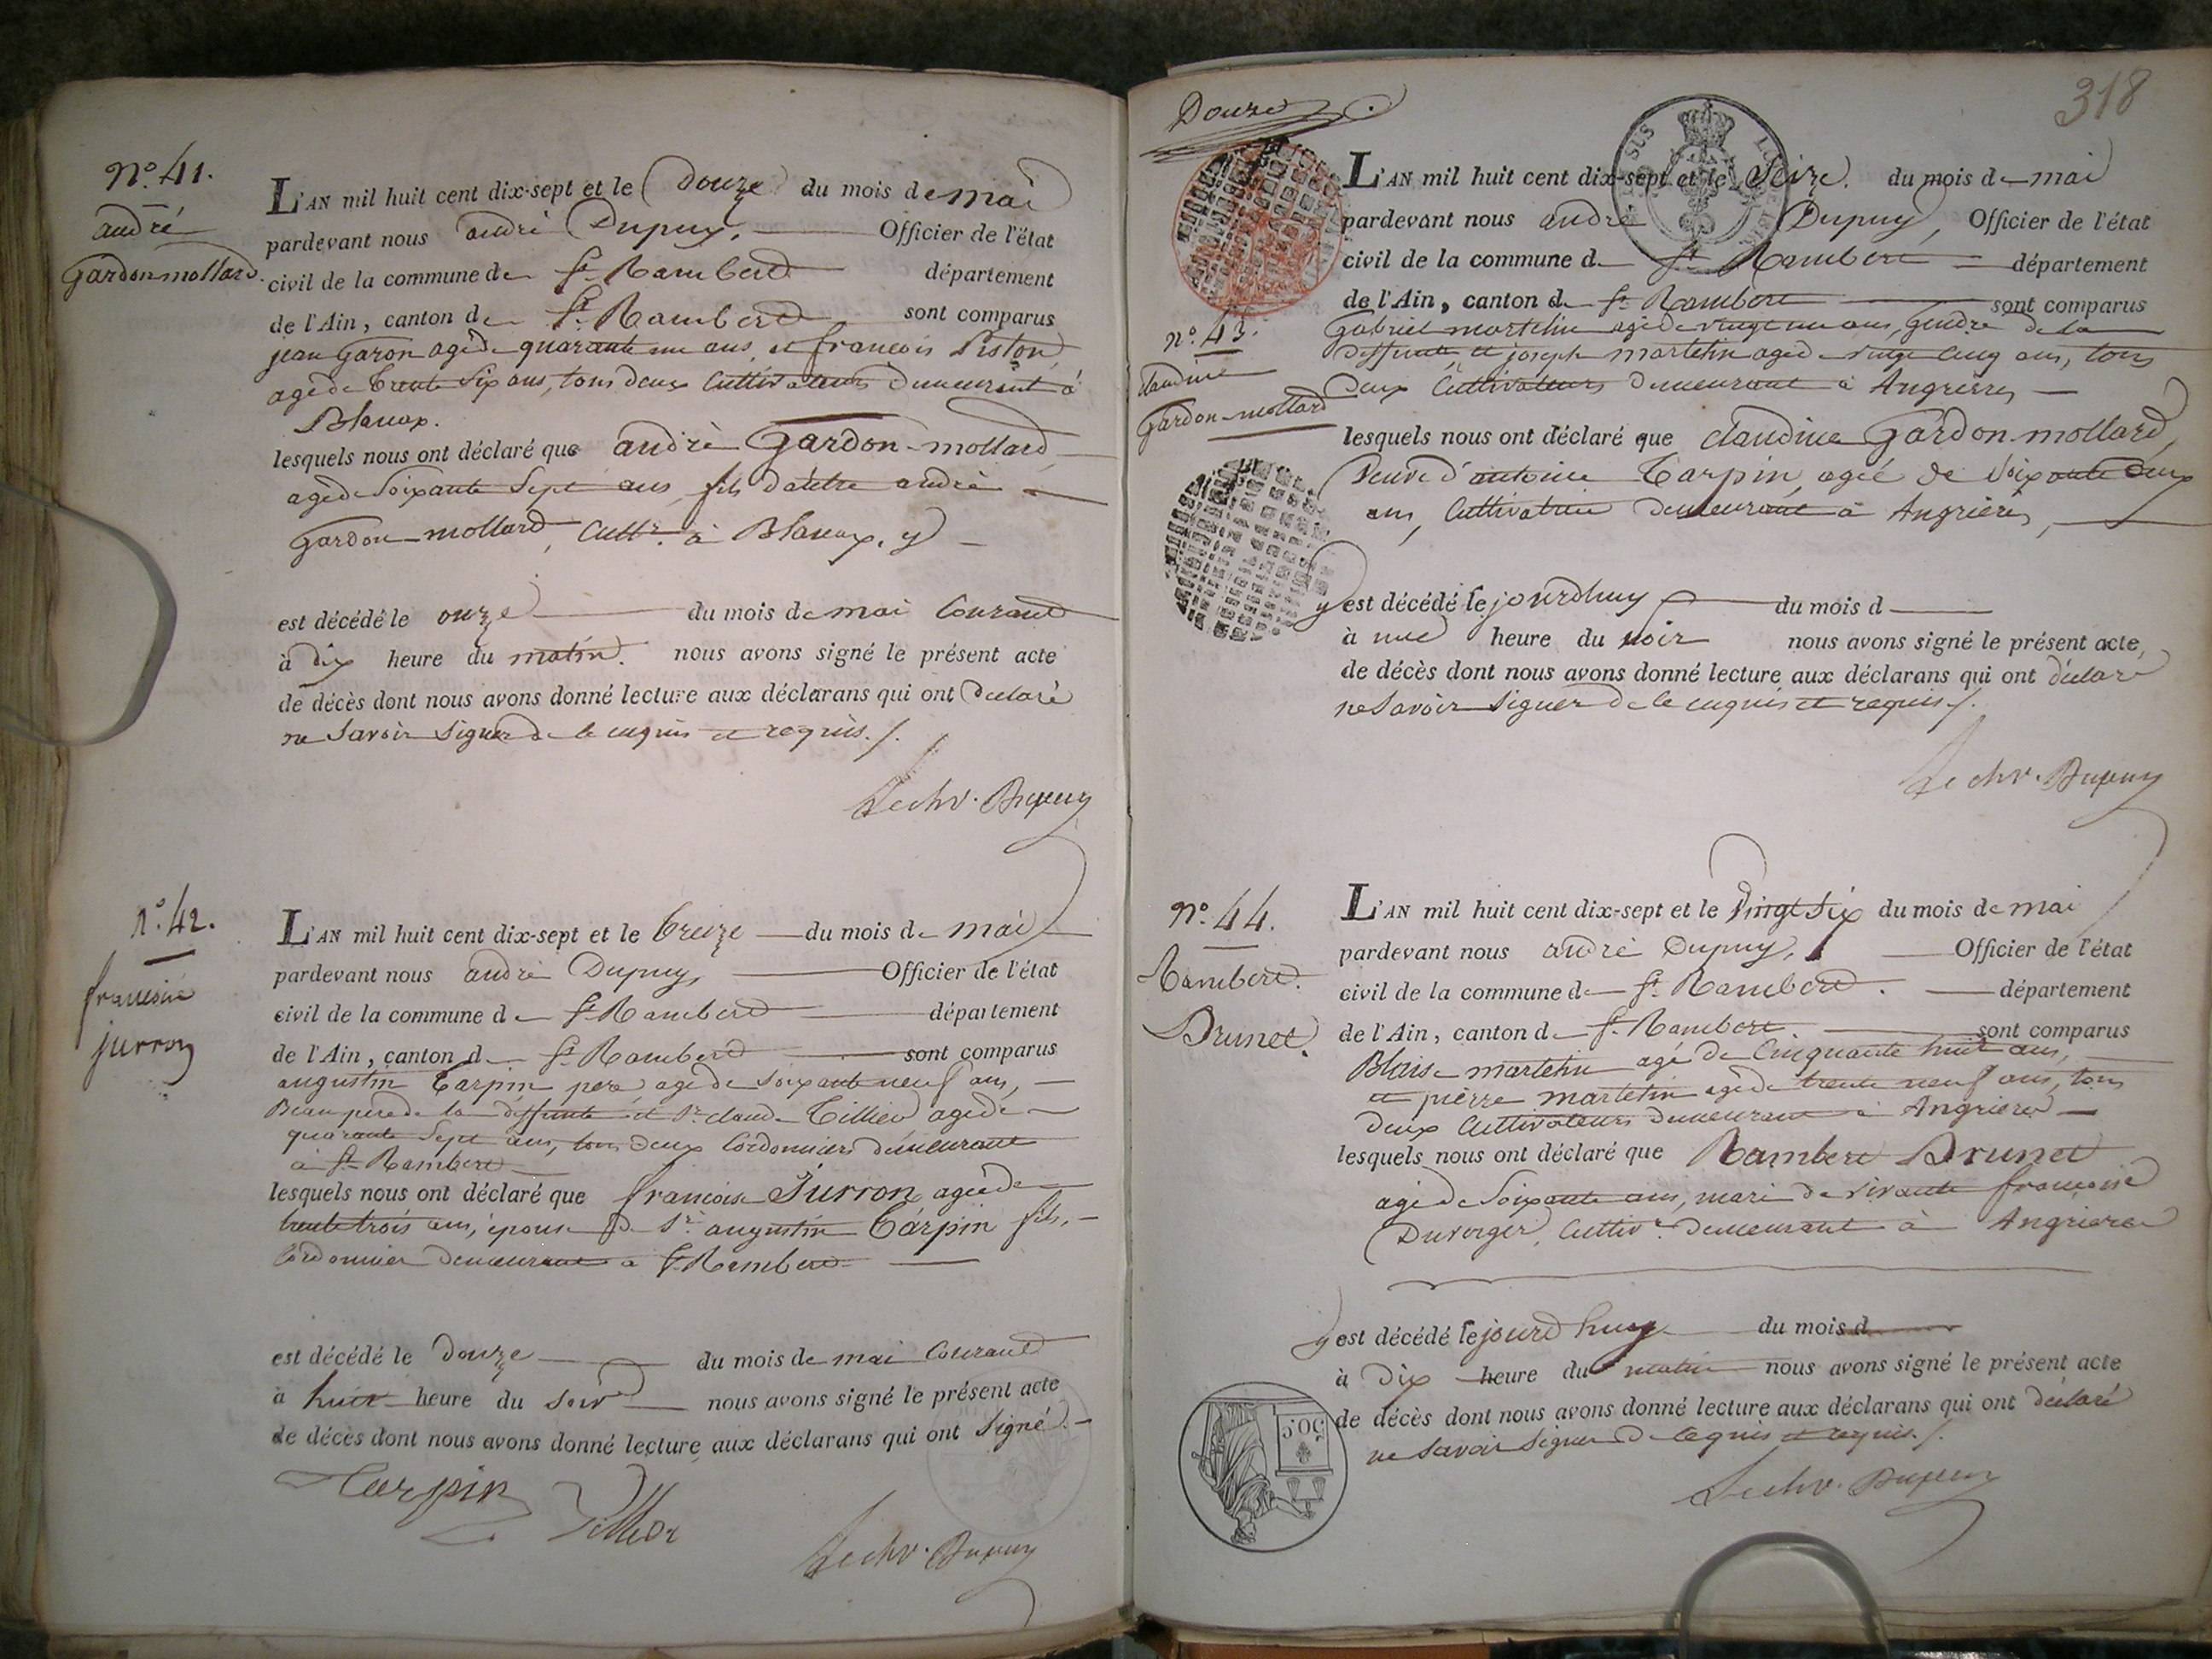 n.° 41.
andré
Gardon-mollard.
L'AN mil huit cent dix-sept et le Douze du mois de mai
pardevant nous andré Dupuy, Officier de l'état
civil de la commune de St. Rambert département
de l'Ain, canton de St. Rambert sont comparus
jean Garon agé de quarante un ans, et francois Piston
agé de trente Six ans, tous deux Cultivateurs Demeurant à
Blanax.
lesquels nous ont déclaré que andré Gardon-mollard
agé de Soixante Sept ans, fils d'autre andré
Gardon-mollard, Cultr. à Blanax, y
est décédé le onze du mois de mai Courant
à dix heure du matin. nous avons signé le présent acte
de décès dont nous avons donné lecture aux déclarans qui ont declaré
ne Savoir Signer de ce enquis et requis./.
Le chr. Dupuy
n.° 42.
francoise
jurron
L'AN mil huit cent dix-sept et le treize du mois de mai
pardevant nous andré Dupuy, Officier de l'état
civil de la commune de St Rambert département
de l'Ain, canton de St. Rambert sont comparus
augustin Tarpin pere agé de Soixante neuf ans,
Beau pere de la deffunte et Sr. claude Tillier agé de
quarante Sept ans, tous deux Cordonniers demeurant
à St. Rambert
lesquels nous ont déclaré que francoise Jurron agée de
trente trois ans, épouse de Sr. augustin Tarpin fils,
Cordonnier demeurant à St. Rambert
est décédé le Douze du mois de mai Courant
à huit heure du Soir nous avons signé le présent acte
de décès dont nous avons donné lecture aux déclarans qui ont Signé.
Tarpin Tillier
Le chr. Dupuy
318
Douze
L'AN mil huit cent dix-sept et le Seize. du mois de mai
pardevant nous andré Dupuy, Officier de l'état
civil de la commune de St. Rambert département
de l'Ain, canton de St. Rambert sont comparus
n.° 43.
claudine
Gardon-mollard
Gabriel martelin agé de vingt un ans, Gendre de la
deffunte et joseph martelin agé de vingt cinq ans, tous
Deux Cultivateurs Demeurant à Angrieres
lesquels nous ont déclaré que claudine Gardon-mollard,
Veuve d'antoine Tarpin, agée de Soixante deux
ans, Cultivatrice Demeurant à Angrieres,
y est décédé le jourdhuy du mois d
à une heure du soir nous avons signé le présent acte,
de décès dont nous avons donné lecture aux déclarans qui ont déclaré
ne Savoir Signer de ce enquis et requis./.
Le chr. Dupuy
n.° 44.
Rambert.
Brunet.
L'AN mil huit cent dix-sept et le Vingt Six du mois de mai
pardevant nous andré Dupuy, Officier de l'état
civil de la commune de St. Rambert. département
de l'Ain, canton de St. Rambert. sont comparus
Blaise martelin agé de Cinquante huit ans,
et pierre martelin agé de trente neuf ans, tous
deux Cultivateurs demeurant à Angrieres
lesquels nous ont déclaré que Rambert Brunet
agé de Soixante ans, mari de vivante francoise
Duverger, Cultivr. demeurant à Angrieres
y est décédé le jourd huy du mois d
à Dix heure du matin nous avons signé le présent acte
de décès dont nous avons donné lecture aux déclarans qui ont déclaré
ne Savoir Signer de ce enquis et requis./.
Le chr. Dupuy
50 C